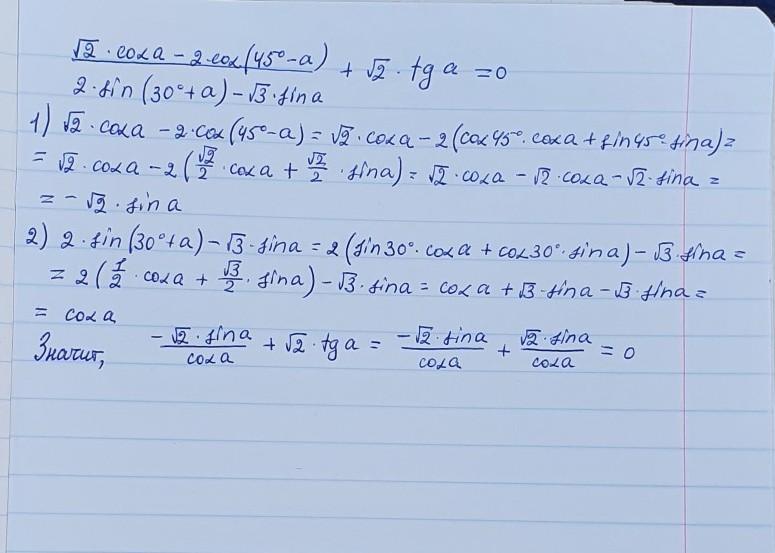 (√2 · cos a − 2 · cos(45° − a)) / (2 · sin(30° + a) − √3 · sin a) + √2 · tg a = 0
1) √2 · cos a − 2 · cos(45° − a) = √2 · cos a − 2(cos 45° · cos a + sin 45° · sin a) =
= √2 · cos a − 2(√2/2 · cos a + √2/2 · sin a) = √2 · cos a − √2 · cos a − √2 · sin a =
= − √2 · sin a
2) 2 · sin(30° + a) − √3 · sin a = 2(sin 30° · cos a + cos 30° · sin a) − √3 · sin a =
= 2(1/2 · cos a + √3/2 · sin a) − √3 · sin a = cos a + √3 · sin a − √3 · sin a =
= cos a
Значит, (−√2 · sin a)/(cos a) + √2 · tg a = (−√2 · sin a)/(cos a) + (√2 · sin a)/(cos a) = 0